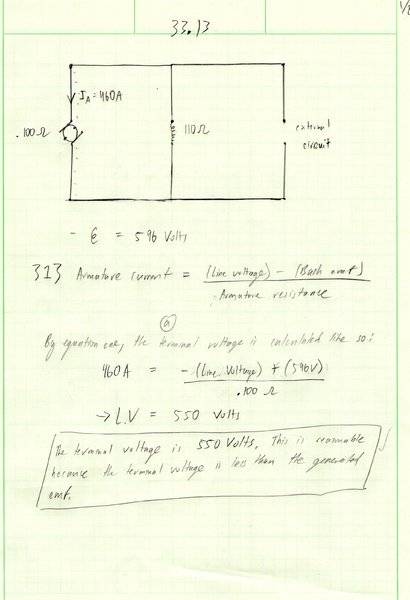 33.13
I_A = 460A
.100Ω
110Ω
external
circuit
- ℰ = 596 Volts
313 Armature current = (Line voltage) - (Back emf)
Armature resistance
(a)
By equation one, the terminal voltage is calculated like so:
460A = - (Line Voltage) + (596V)
.100 Ω
→ L.V = 550 Volts
The terminal voltage is 550 Volts. This is reasonable
because the terminal voltage is less than the generated
emf.